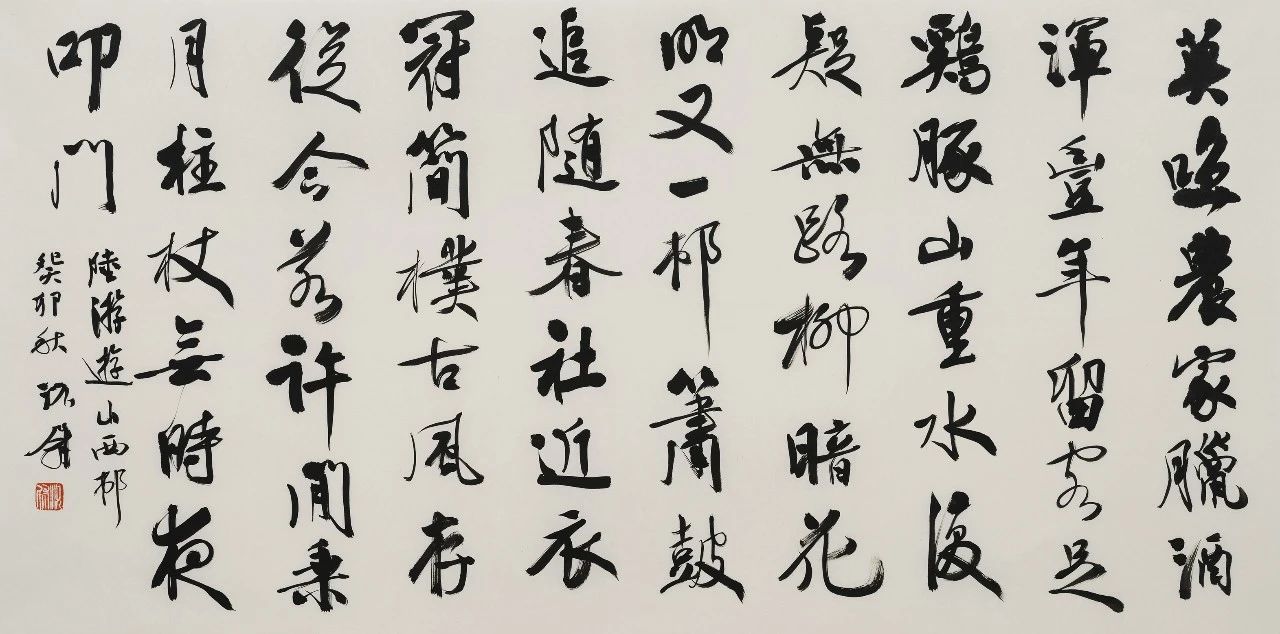 莫咲農家臘酒
渾豐年留客足
鷄豚山重水復
疑無路柳暗花
明又一邨簫鼓
追随春社近衣
冠簡樸古風存
從今若許閒乘
月柱杖無時夜
叩門
陸游遊山西邨
癸卯秋